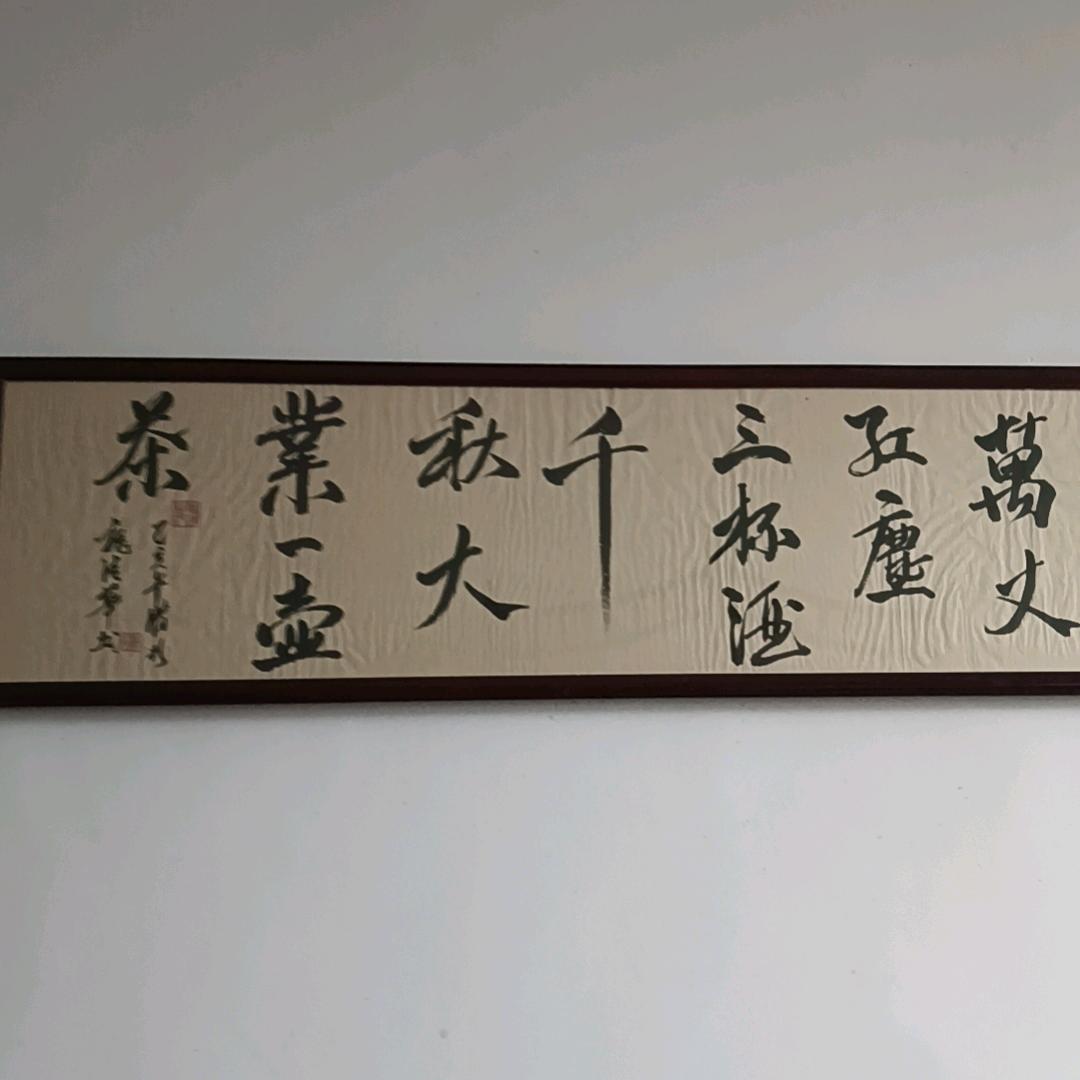 萬丈
紅塵
三杯酒
千
秋大
業一壺
茶